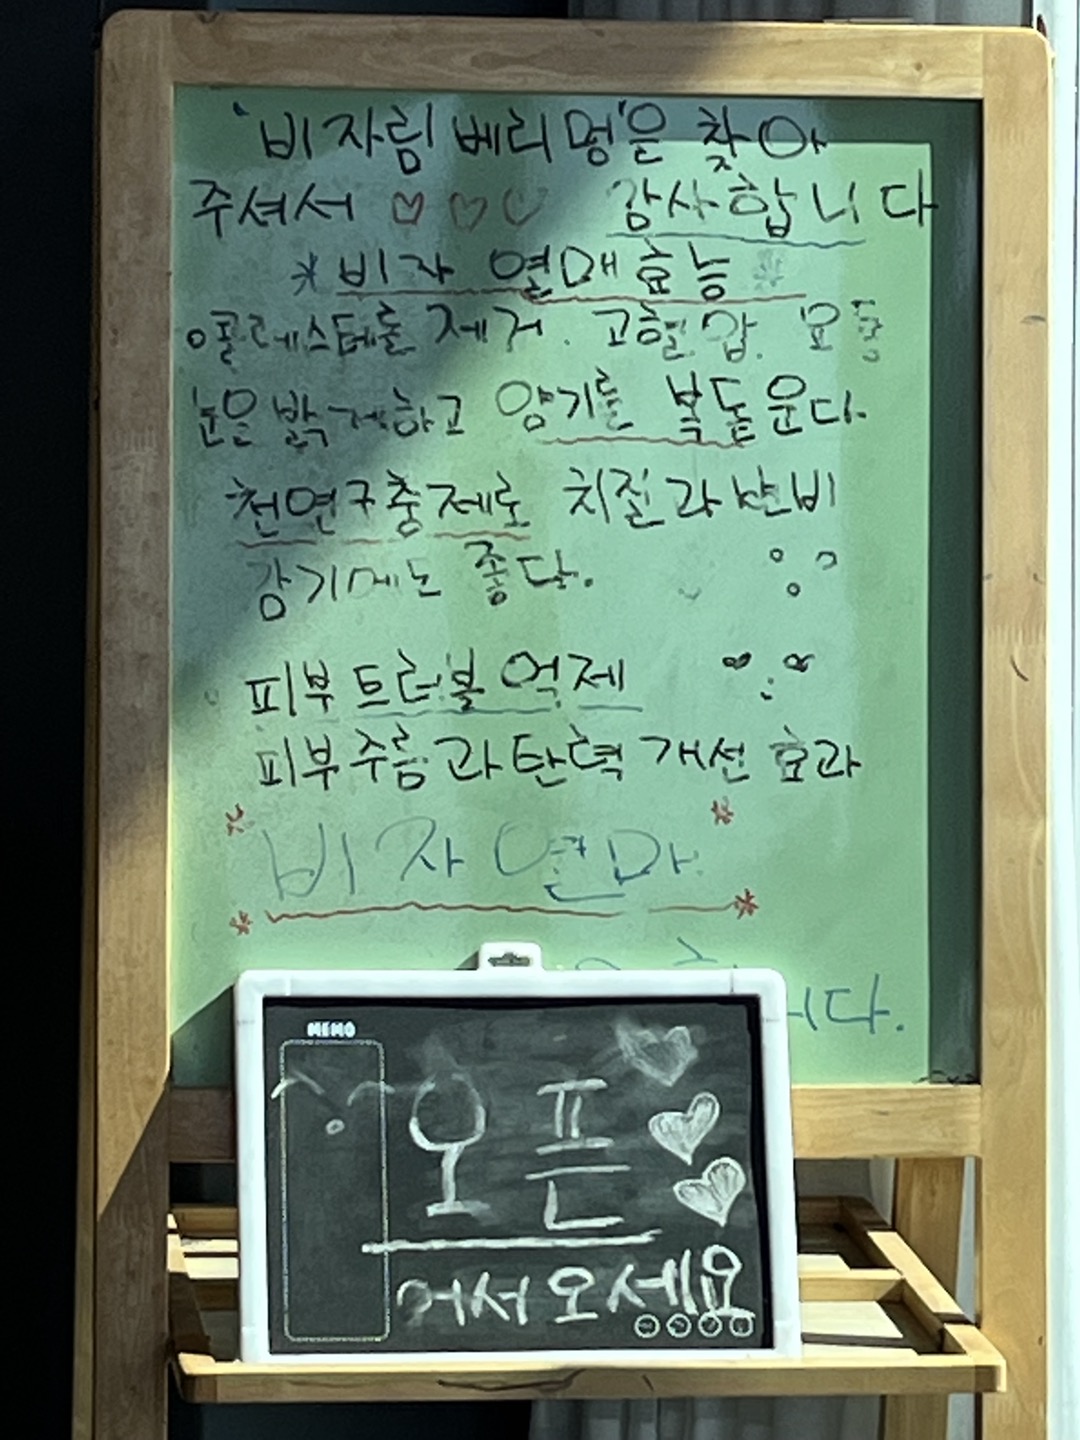 '비자림 베리멍'을 찾아
주셔서 ♡♡♡ 감사합니다
* 비자 열매 효능
콜레스테롤 제거. 고혈압. 요통
눈을 밝게하고 양기를 북돋운다.
천연구충제로 치질과 변비
감기에는 좋다.
피부 트러블 억제
피부주름과 탄력 개선 효과
비자열매
니다.
MEMO
오픈
어서오세요